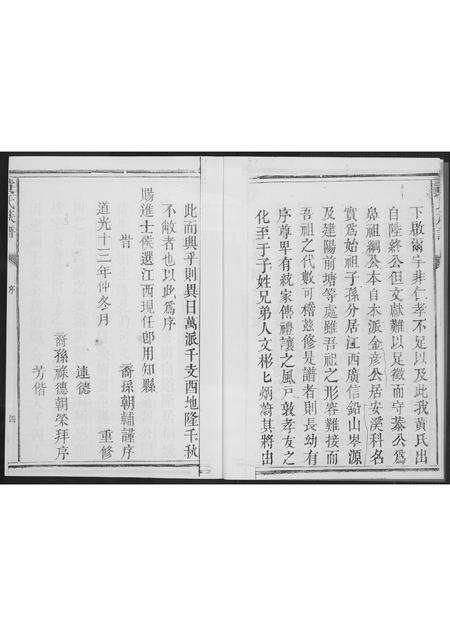 下敦爾宇非仁孝不足以及此我黃氏出
自陸終公但文獻難以足徵而守恭公爲
鼻祖綱公本自木派金彥公居安溪科名
實爲始祖子孫分居江西廣信鉛山岑源
及建陽前塘等處雖吾祖之形容難接而
吾祖之代數可稽茲修是譜者則長幼有
序尊卑有統家傳禮讓之風戸敦孝友之
化至于子姓兄弟人文彬匕炳蔚其將由
此而興乎則異日萬派千支酉地隆千秋
不敝者也以此爲序
賜進士候選江西現任卽用知縣
旹
裔孫朝輔謹序
道光十三年仲冬月
重修
連德
裔孫祿德朝榮拜序
芳偕
黃氏族譜
序